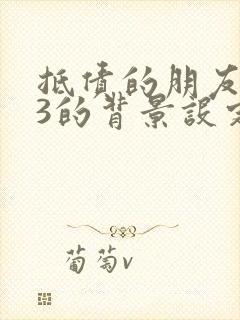 抵债的朋友
3的背景设定
葡萄v